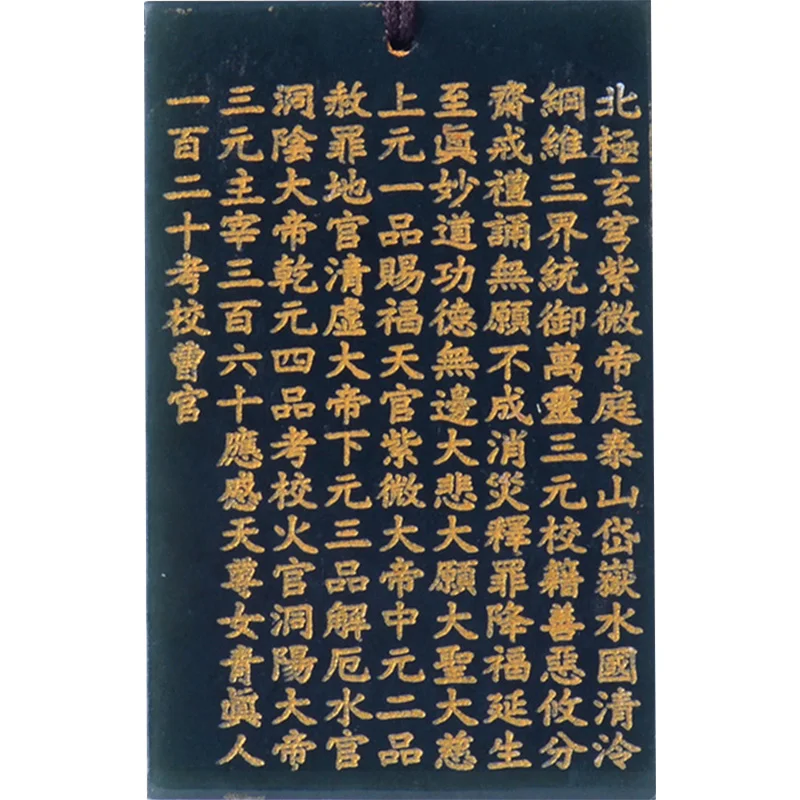 北極玄穹紫微帝庭泰山岱嶽水國清泠
綱維三界統御萬靈三元校籍善惡攸分
齋戒禮誦無願不成消災釋罪降福延生
至眞妙道功德無邊大悲大願大聖大慈
上元一品賜福天官紫微大帝中元二品
赦罪地官清虛大帝下元三品解厄水官
洞陰大帝乾元四品考校火官洞陽大帝
三元主宰三百六十應感天尊女青眞人
一百二十考校曹官